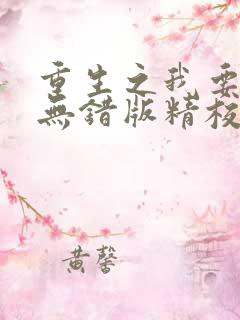 重生之我要
無錯版精校
黃馨